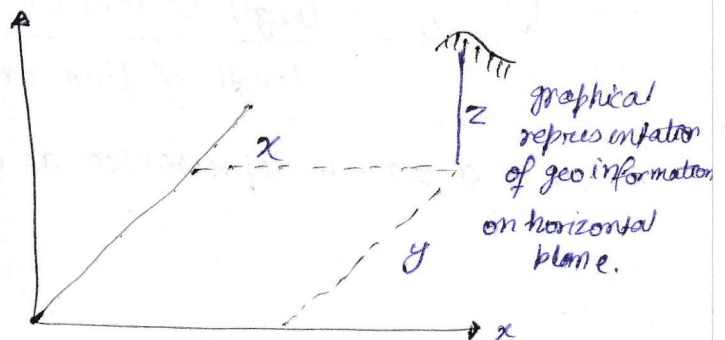 x
z
y
x
graphical
representation
of geo information
on horizontal
plane.